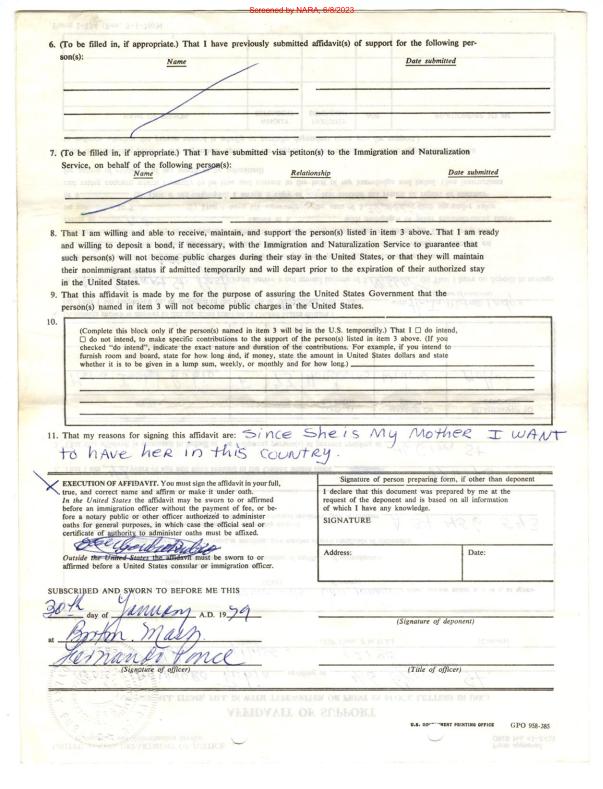 Screened by NARA, 6/8/2023
6. (To be filled in, if appropriate.) That I have previously submitted affidavit(s) of support for the following per-
son(s):
Name Date submitted
7. (To be filled in, if appropriate.) That I have submitted visa petiton(s) to the Immigration and Naturalization
Service, on behalf of the following person(s):
Name Relationship Date submitted
8. That I am willing and able to receive, maintain, and support the person(s) listed in item 3 above. That I am ready
and willing to deposit a bond, if necessary, with the Immigration and Naturalization Service to guarantee that
such person(s) will not become public charges during their stay in the United States, or that they will maintain
their nonimmigrant status if admitted temporarily and will depart prior to the expiration of their authorized stay
in the United States.
9. That this affidavit is made by me for the purpose of assuring the United States Government that the
person(s) named in item 3 will not become public charges in the United States.
10.
(Complete this block only if the person(s) named in item 3 will be in the U.S. temporarily.) That I ☐ do intend,
☐ do not intend, to make specific contributions to the support of the person(s) listed in item 3 above. (If you
checked "do intend", indicate the exact nature and duration of the contributions. For example, if you intend to
furnish room and board, state for how long and, if money, state the amount in United States dollars and state
whether it is to be given in a lump sum, weekly, or monthly and for how long.)
11. That my reasons for signing this affidavit are: Since She is My Mother I WANT
to hAve her in this country.
EXECUTION OF AFFIDAVIT. You must sign the affidavit in your full,
true, and correct name and affirm or make it under oath.
In the United States the affidavit may be sworn to or affirmed
before an immigration officer without the payment of fee, or be-
fore a notary public or other officer authorized to administer
oaths for general purposes, in which case the official seal or
certificate of authority to administer oaths must be affixed.
Outside the United States the affidavit must be sworn to or
affirmed before a United States consular or immigration officer.
Signature of person preparing form, if other than deponent
I declare that this document was prepared by me at the
request of the deponent and is based on all information
of which I have any knowledge.
SIGNATURE
Address: Date:
SUBSCRIBED AND SWORN TO BEFORE ME THIS
30th day of January A.D. 1979
at Boston, Mass
Fernando Ponce
(Signature of officer)
(Signature of deponent)
(Title of officer)
U.S. GOVERNMENT PRINTING OFFICE GPO 958-385